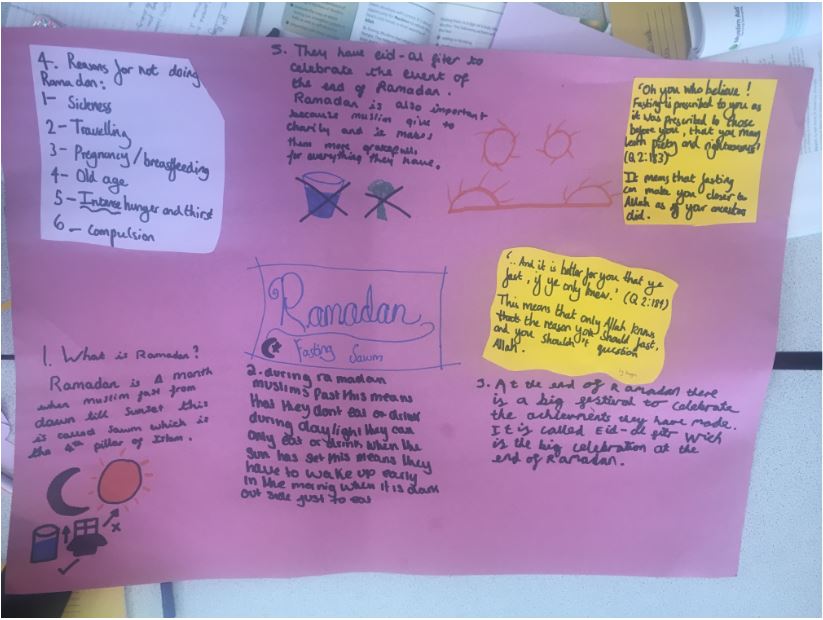 4. Reasons for not doing
Ramadan:
1- Sickness
2- Travelling
3- Pregnancy/breastfeeding
4- Old age
5- Intense hunger and thirst
6- compulsion
5. They have eid-al fiter to
celebrate the event of
the end of Ramadan.
Ramadan is also important
because muslim give to
charity and it makes
them more gratefull
for everything they have.
'Oh you who believe!
Fasting is prescribed to you as
it was prescribed to those
before you, that you may
learn piety and righteousness'
(Q 2:183)
It means that fasting
can make you closer to
Allah as if your ancestors
did.
Ramadan
Fasting Sawm
'.. And it is better for you that ye
fast, if ye only knew.' (Q 2:184)
This means that only Allah knows
thats the reason you should fast,
and you shouldn't question
Allah.
1. What is Ramadan?
Ramadan is a month
when muslim fast from
dawn till sunset this
is called Sawm which is
the 4th pillar of Islam.
2. during ramadan
muslims fast this means
that they dont eat or drink
during daylight they can
only eat or drink when the
sun has set this means they
have to wake up early
in the mornig when it is dark
out side just to eat
3. At the end of Ramadan there
is a big festival to celebrate
the achiements they have made.
It is called Eid-al fitr wich
is the big celebration at the
end of Ramadan.
Muslim Aid